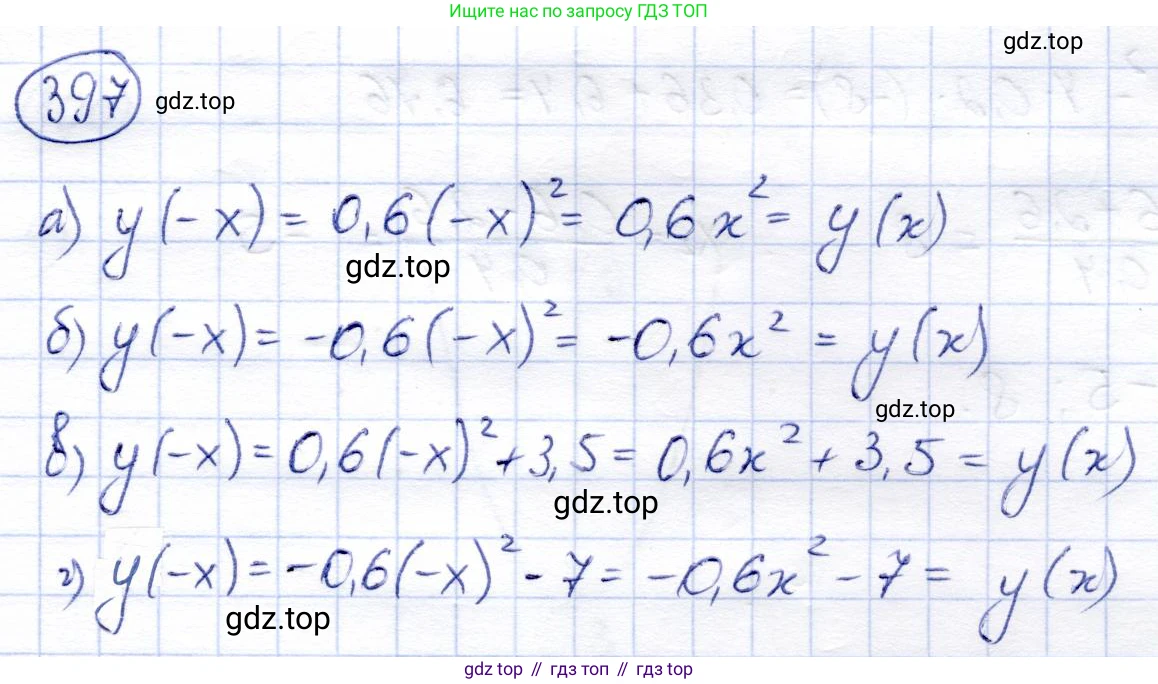 Ищите нас по запросу ГДЗ ТОП
gdz.top
397 gdz.top
а) y(-x) = 0,6(-x)² = 0,6x² = y(x)
gdz.top
б) y(-x) = -0,6(-x)² = -0,6x² = y(x)
gdz.top
в) y(-x) = 0,6(-x)² + 3,5 = 0,6x² + 3,5 = y(x)
gdz.top
г) y(-x) = -0,6(-x)² - 7 = -0,6x² - 7 = y(x)
gdz.top
gdz top // гдз топ // гдз top